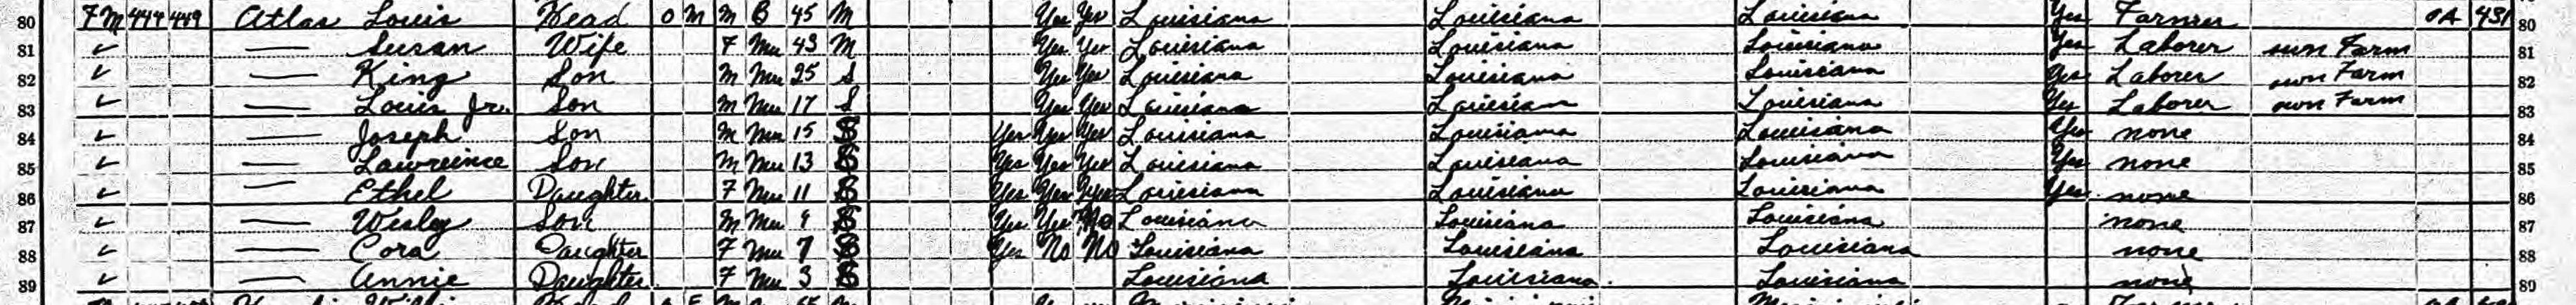 80 Fm 444 449 Atlas Louis Head O M M B 45 M Yes Yes Louisiana Louisiana Louisiana Yes Farmer OA 431 80
81 ✓ — Susan Wife F Mu 43 M Yes Yes Louisiana Louisiana Louisiana Yes Laborer own Farm 81
82 ✓ — King Son M Mu 25 S Yes Yes Louisiana Louisiana Louisiana Yes Laborer own Farm 82
83 ✓ — Louis Jr. Son M Mu 17 S Yes Yes Louisiana Louisiana Louisiana Yes Laborer own Farm 83
84 ✓ — Joseph Son M Mu 15 S Yes Yes Yes Louisiana Louisiana Louisiana Yes none 84
85 ✓ — Lawreince Son M Mu 13 S Yes Yes Yes Louisiana Louisiana Louisiana Yes none 85
86 ✓ — Ethel Daughter F Mu 11 S Yes Yes Yes Louisiana Louisiana Louisiana Yes none 86
87 ✓ — Wesley Son M Mu 9 S Yes Yes No Louisiana Louisiana Louisiana none 87
88 ✓ — Cora Daughter F Mu 7 S Yes No No Louisiana Louisiana Louisiana none 88
89 ✓ — Annie Daughter F Mu 3 S Louisiana Louisiana Louisiana none 89